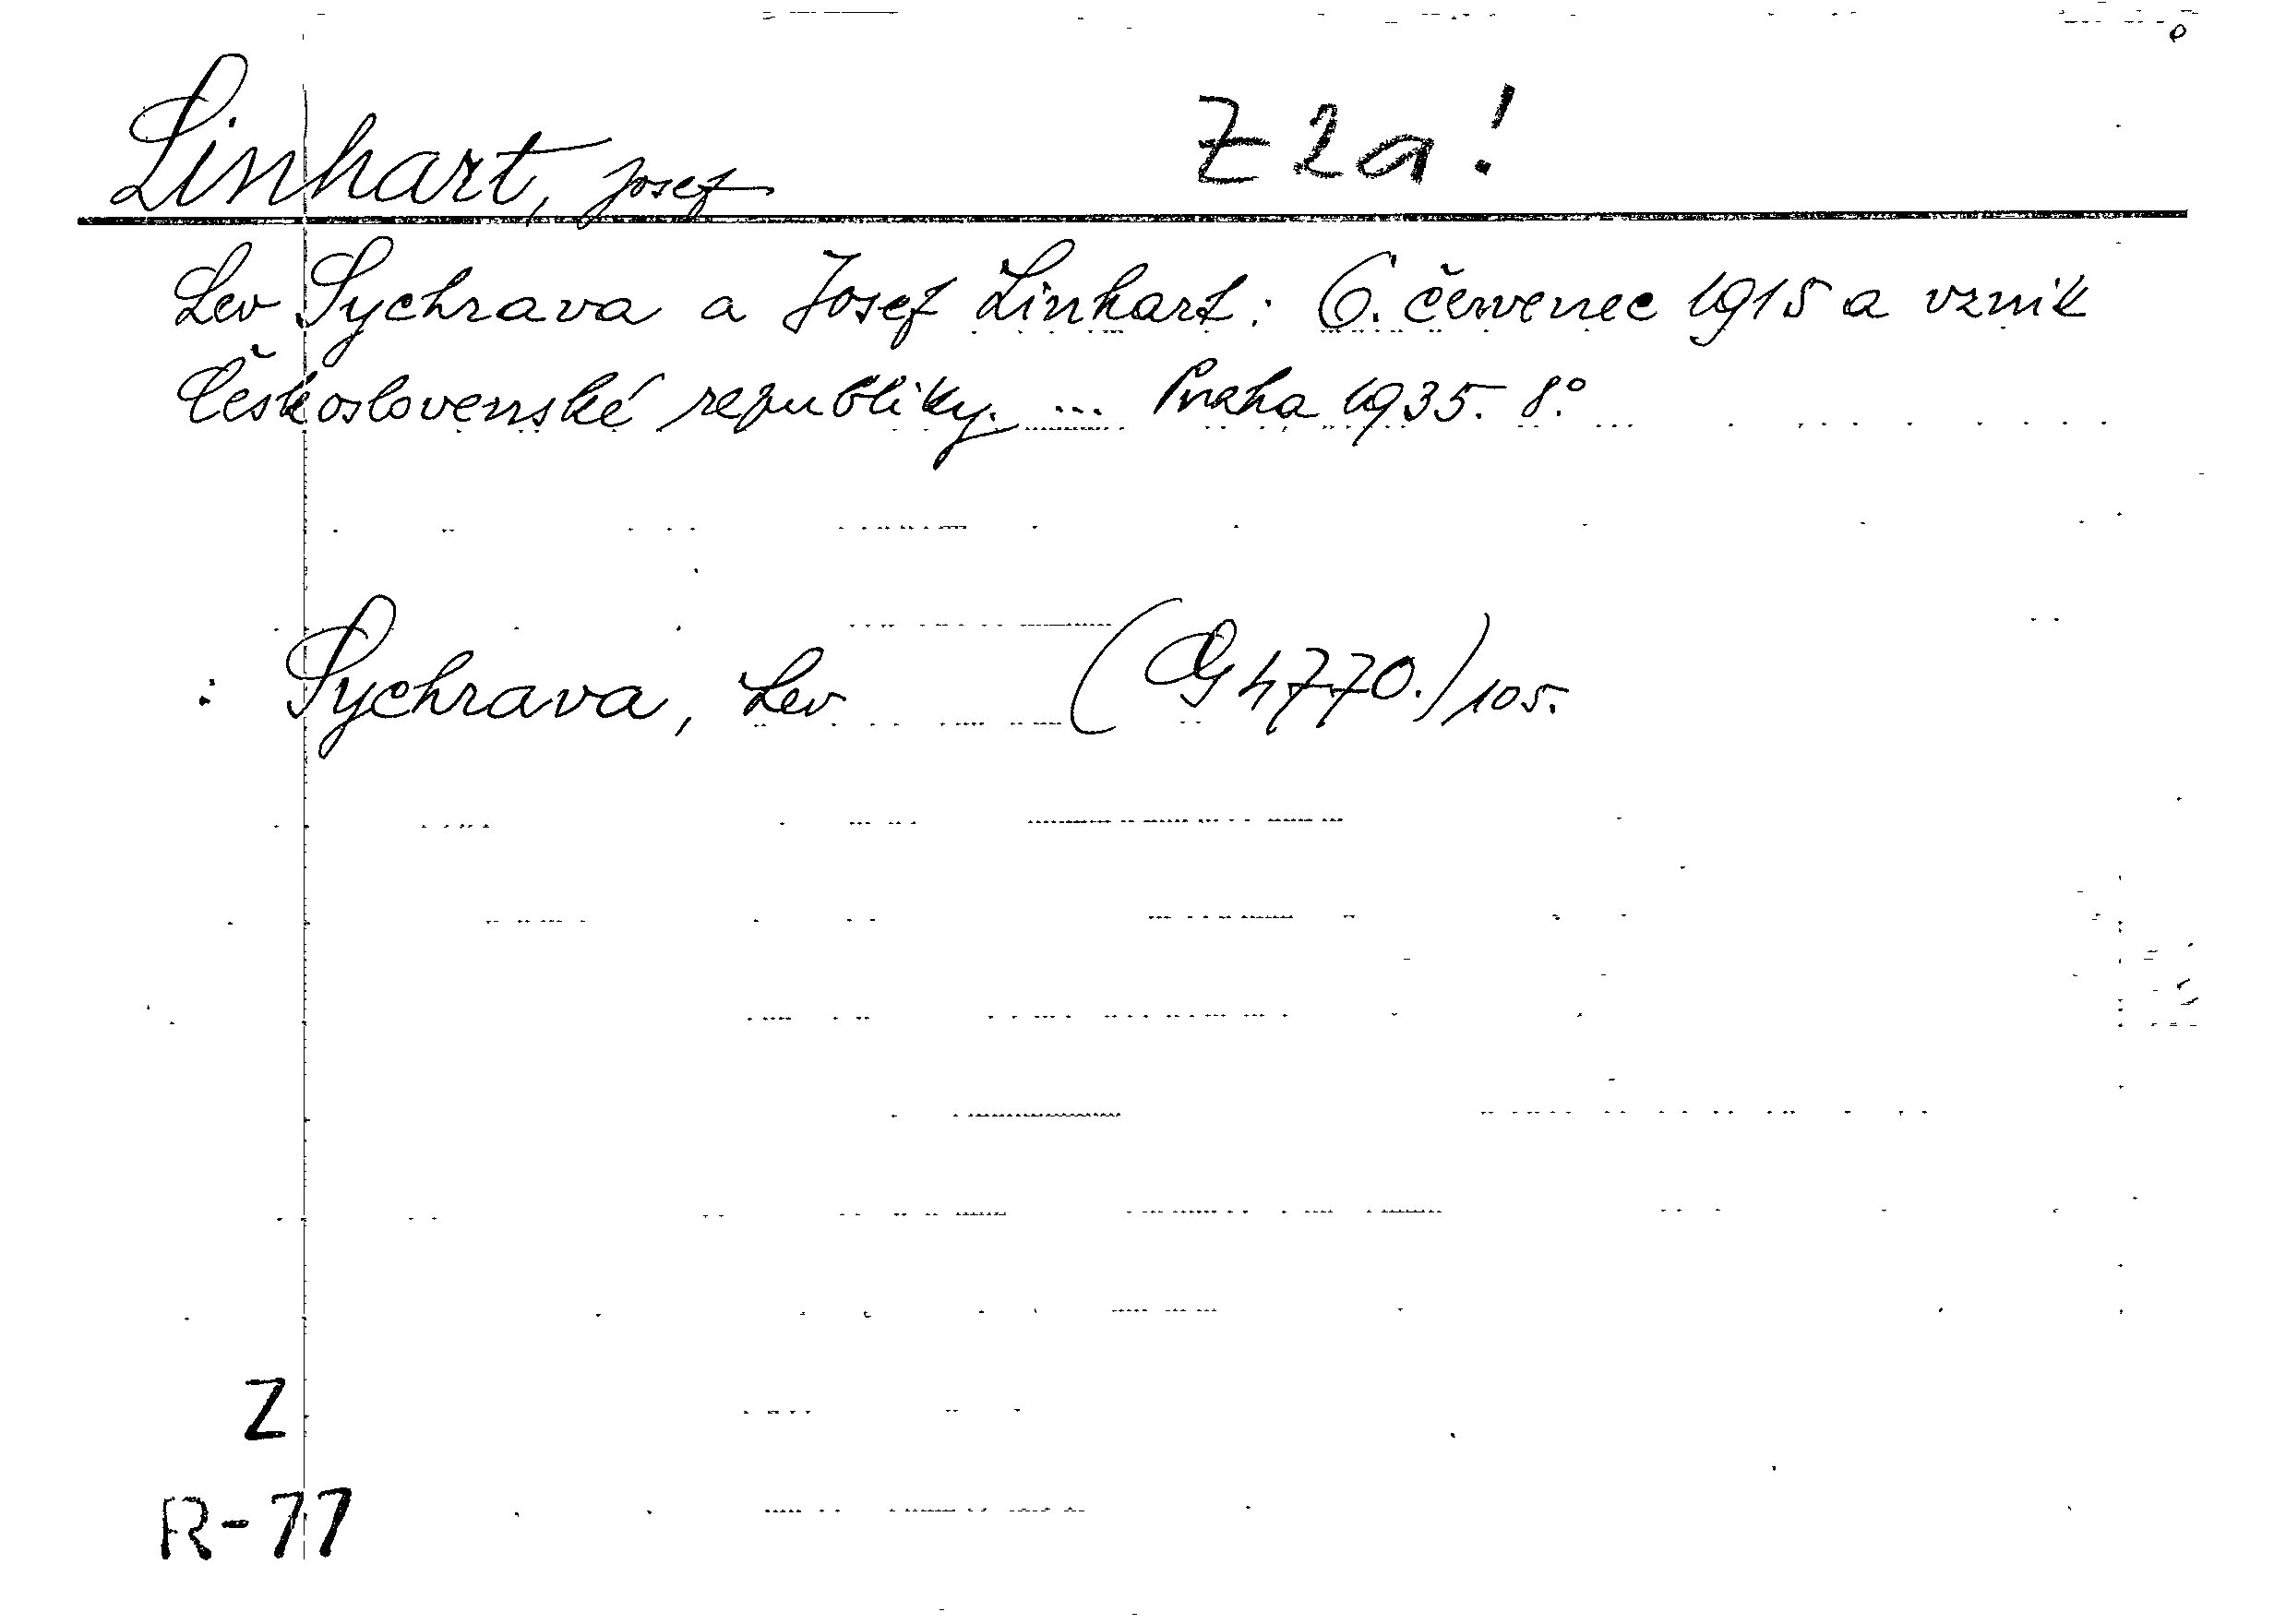 Linhart, Josef Z 2a!
Lev Sychrava a Josef Linhart: 6. červenec 1915 a vznik
Československé republiky. ... Praha 1935. 8°.
: Sychrava, Lev (Og 4770.)/105.
Z
R-77